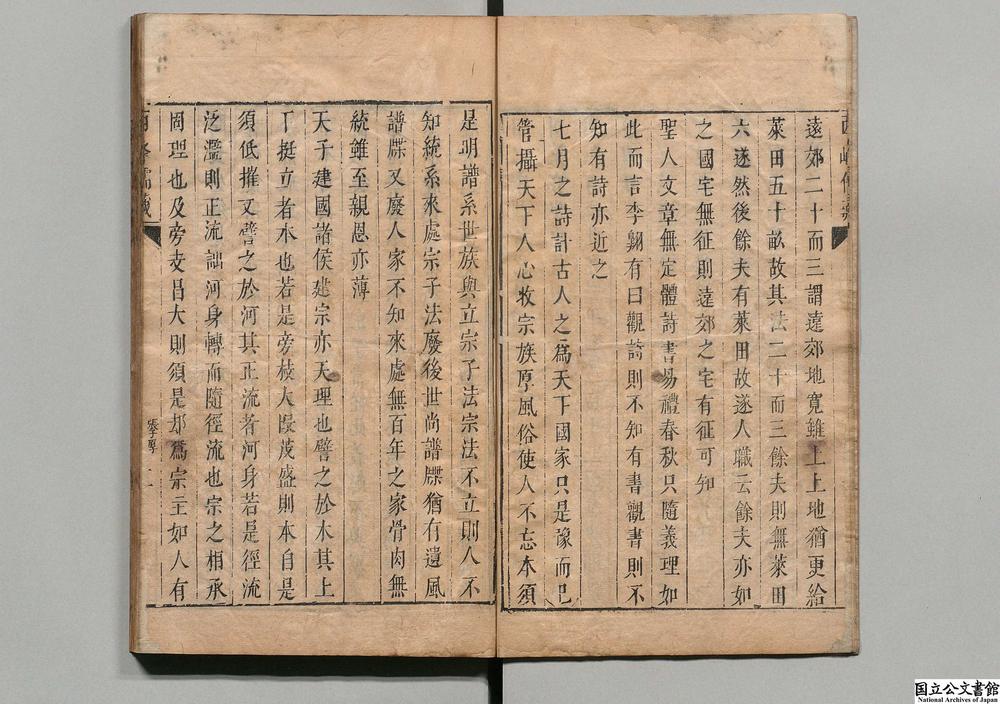 遠郊二十而三謂遠郊地寬雖上上地猶更給
萊田五十畝故其法二十而三餘夫則無萊田
六遂然後餘夫有萊田故遂人職云餘夫亦如
之國宅無征則遠郊之宅有征可知
聖人文章無定體詩書易禮春秋只隨義理如
此而言李翱有曰觀詩則不知有書觀書則不
知有詩亦近之
七月之詩計古人之為天下國家只是豫而已
管攝天下人心收宗族厚風俗使人不忘本須
是明譜系世族與立宗子法宗法不立則人不
知統系來處宗子法廢後世尚譜牒猶有遺風
譜牒又廢人家不知來處無百年之家骨肉無
統雖至親恩亦薄
天子建國諸侯建宗亦天理也譬之於木其上
下挺立者本也若是旁枝大段茂盛則本自是
須低摧又譬之於河其正流者河身若是徑流
泛濫則正流詘河身轉而隨徑流也宗之相承
固理也及旁支昌大則須是却為宗主如人有
国立公文書館
National Archives of Japan